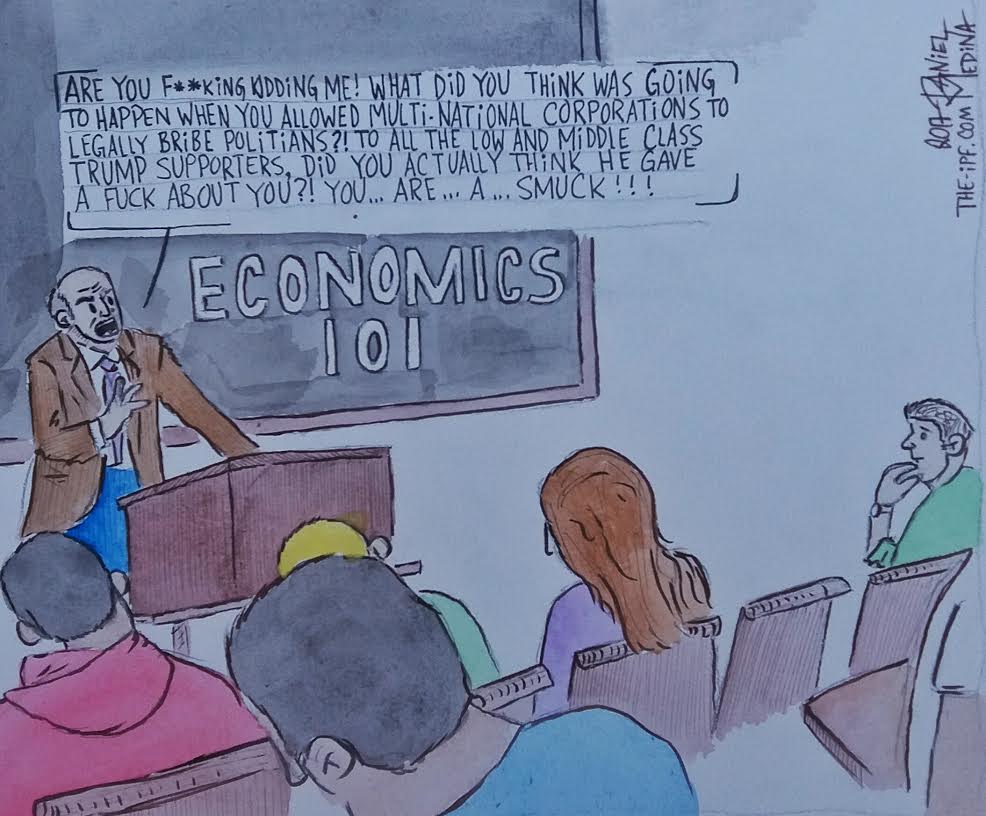 ARE YOU F**KING KIDDING ME! WHAT DID YOU THINK WAS GOING
TO HAPPEN WHEN YOU ALLOWED MULTI-NATIONAL CORPORATIONS TO
LEGALLY BRIBE POLITIANS?! TO ALL THE LOW AND MIDDLE CLASS
TRUMP SUPPORTERS, DID YOU ACTUALLY THINK HE GAVE
A FUCK ABOUT YOU?! YOU... ARE... A... SMUCK!!!
ECONOMICS
101
DANIEL
MEDINA
THE-IPF.COM